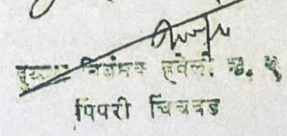 दुय्यम निबंधक हवेली क्र. ५
पिंपरी चिंचवड